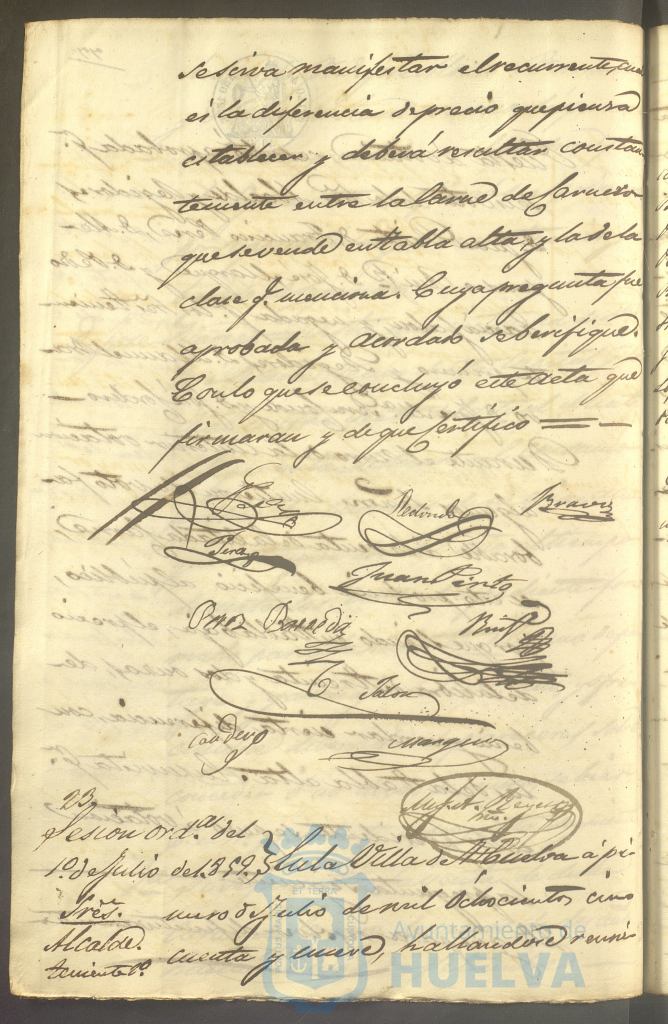 se sirva manifestar el recurrente, cual
és la diferencia de precio que piensa
establecer y deberá resultar constan
temente entre la Carne de Carnero
que se vende en tabla alta, y la de la
clase q.e menciona. Cuya pregunta fue
aprobada y acordado se berifique.
Con lo que se concluyó este Acta que
firmaran y de que Certifico
Redondo
Bravo
Perez
Juan Pinto
Perez Barreda
Ruiz
Jalon
Candevo
Marquez
Mig.l A. Reyes
23
Sesion ord.al del
1.o de Julio de 1.859.
En la Villa de Huelva á pri
Srês.
mero de Julio de mil Ochocientos cinc
Alcalde.
cuenta y nueve, hallandose reuni
teniente 1.o
Ayuntamiento de
HUELVA